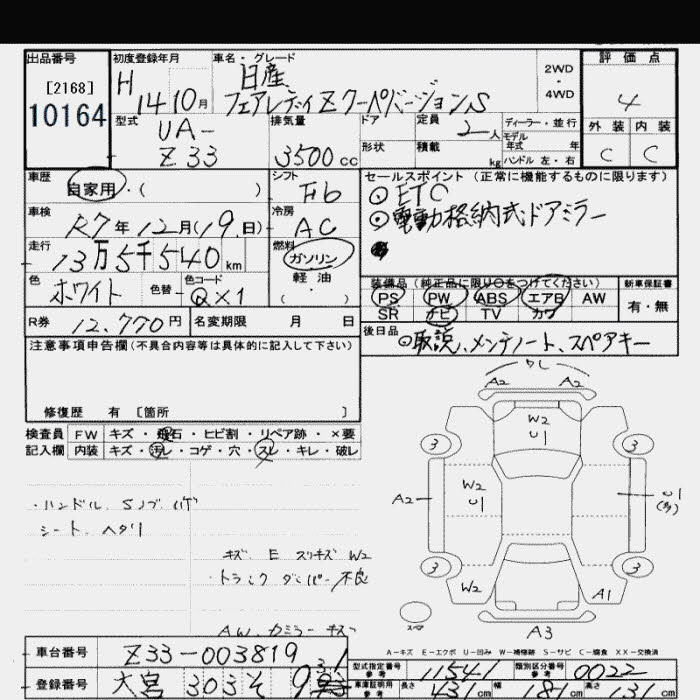 出品番号
[2168]
10164
初度登録年月
H 14 10月
車名・グレード
日産
フェアレディZ クーペバージョンS
2WD
・
4WD
評価点
4
外装 内装
C C
型式
UA-
Z33
排気量
3500cc
ドア
形状
定員
2人
積載
kg
ディーラー・並行
モデル年式 年
ハンドル 左・右
車歴
自家用・( )
シフト
F6
車検
R7年12月(19日)
冷房
AC
走行
13万5千540km
燃料
ガソリン
軽油
・
( )
色
ホワイト
色替
色コード
QX1
R券 12,770円
名変期限 月 日
セールスポイント(正常に機能するものに限ります)
⊙ETC
⊙電動格納式ドアミラー
装備品(純正品に限り○をつけてください)
PS PW ABS エアB AW
SR ナビ TV カワ
新車保証書
有・無
後日品
⊙取説、メンテノート、スペアキー
注意事項申告欄(不具合内容等は具体的に記入して下さい)
修復歴 有 [箇所 ]
検査員 FW キズ・飛石・ヒビ割・リペア跡・×要
記入欄 内装 キズ・汚レ・コゲ・穴・スレ・キレ・破レ
・ハンドル、Sノブ ハゲ
シート ヘタリ
キズ E スリキズ W2
・トランク ダンパー不良
AW、カミラー キズ
ワレ
A2 A2
W2
U1
3 3
A2
W2
U1
U1
(多)
3 3
W2 A1
スペア
A3
A-キズ E-エクボ U-凹み W-補修跡 S-サビ C-腐食 XX-交換済
車台番号 Z33-003819
登録番号 大宮 303 そ
型式指定番号 11541
類別区分番号 0022
車庫証明用参考 長さ 431cm 幅 181cm 高さ 131cm